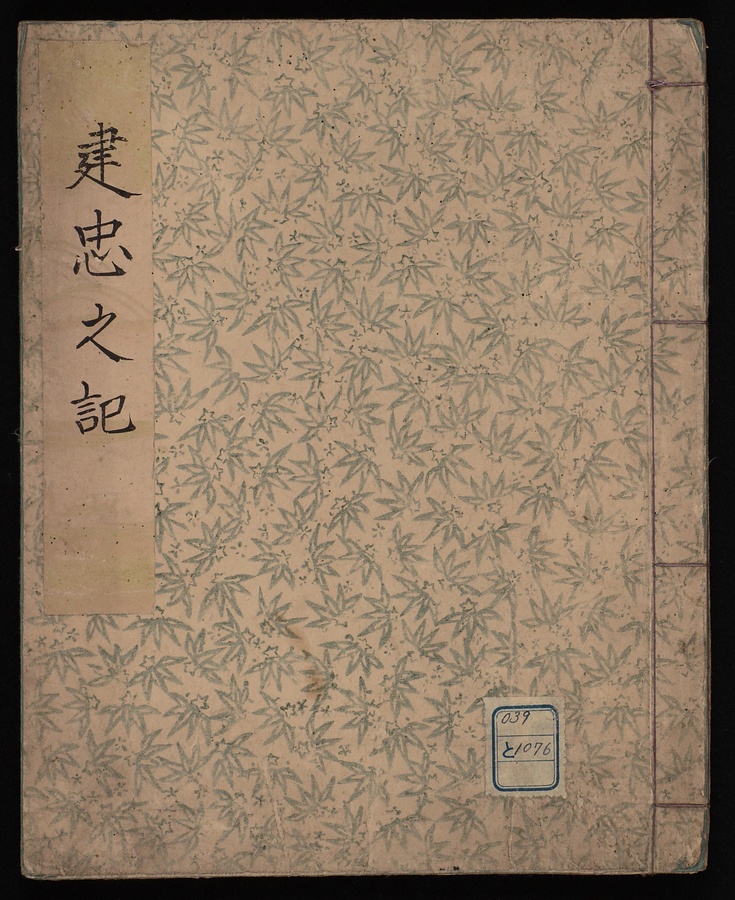 建忠之記
039
R1076